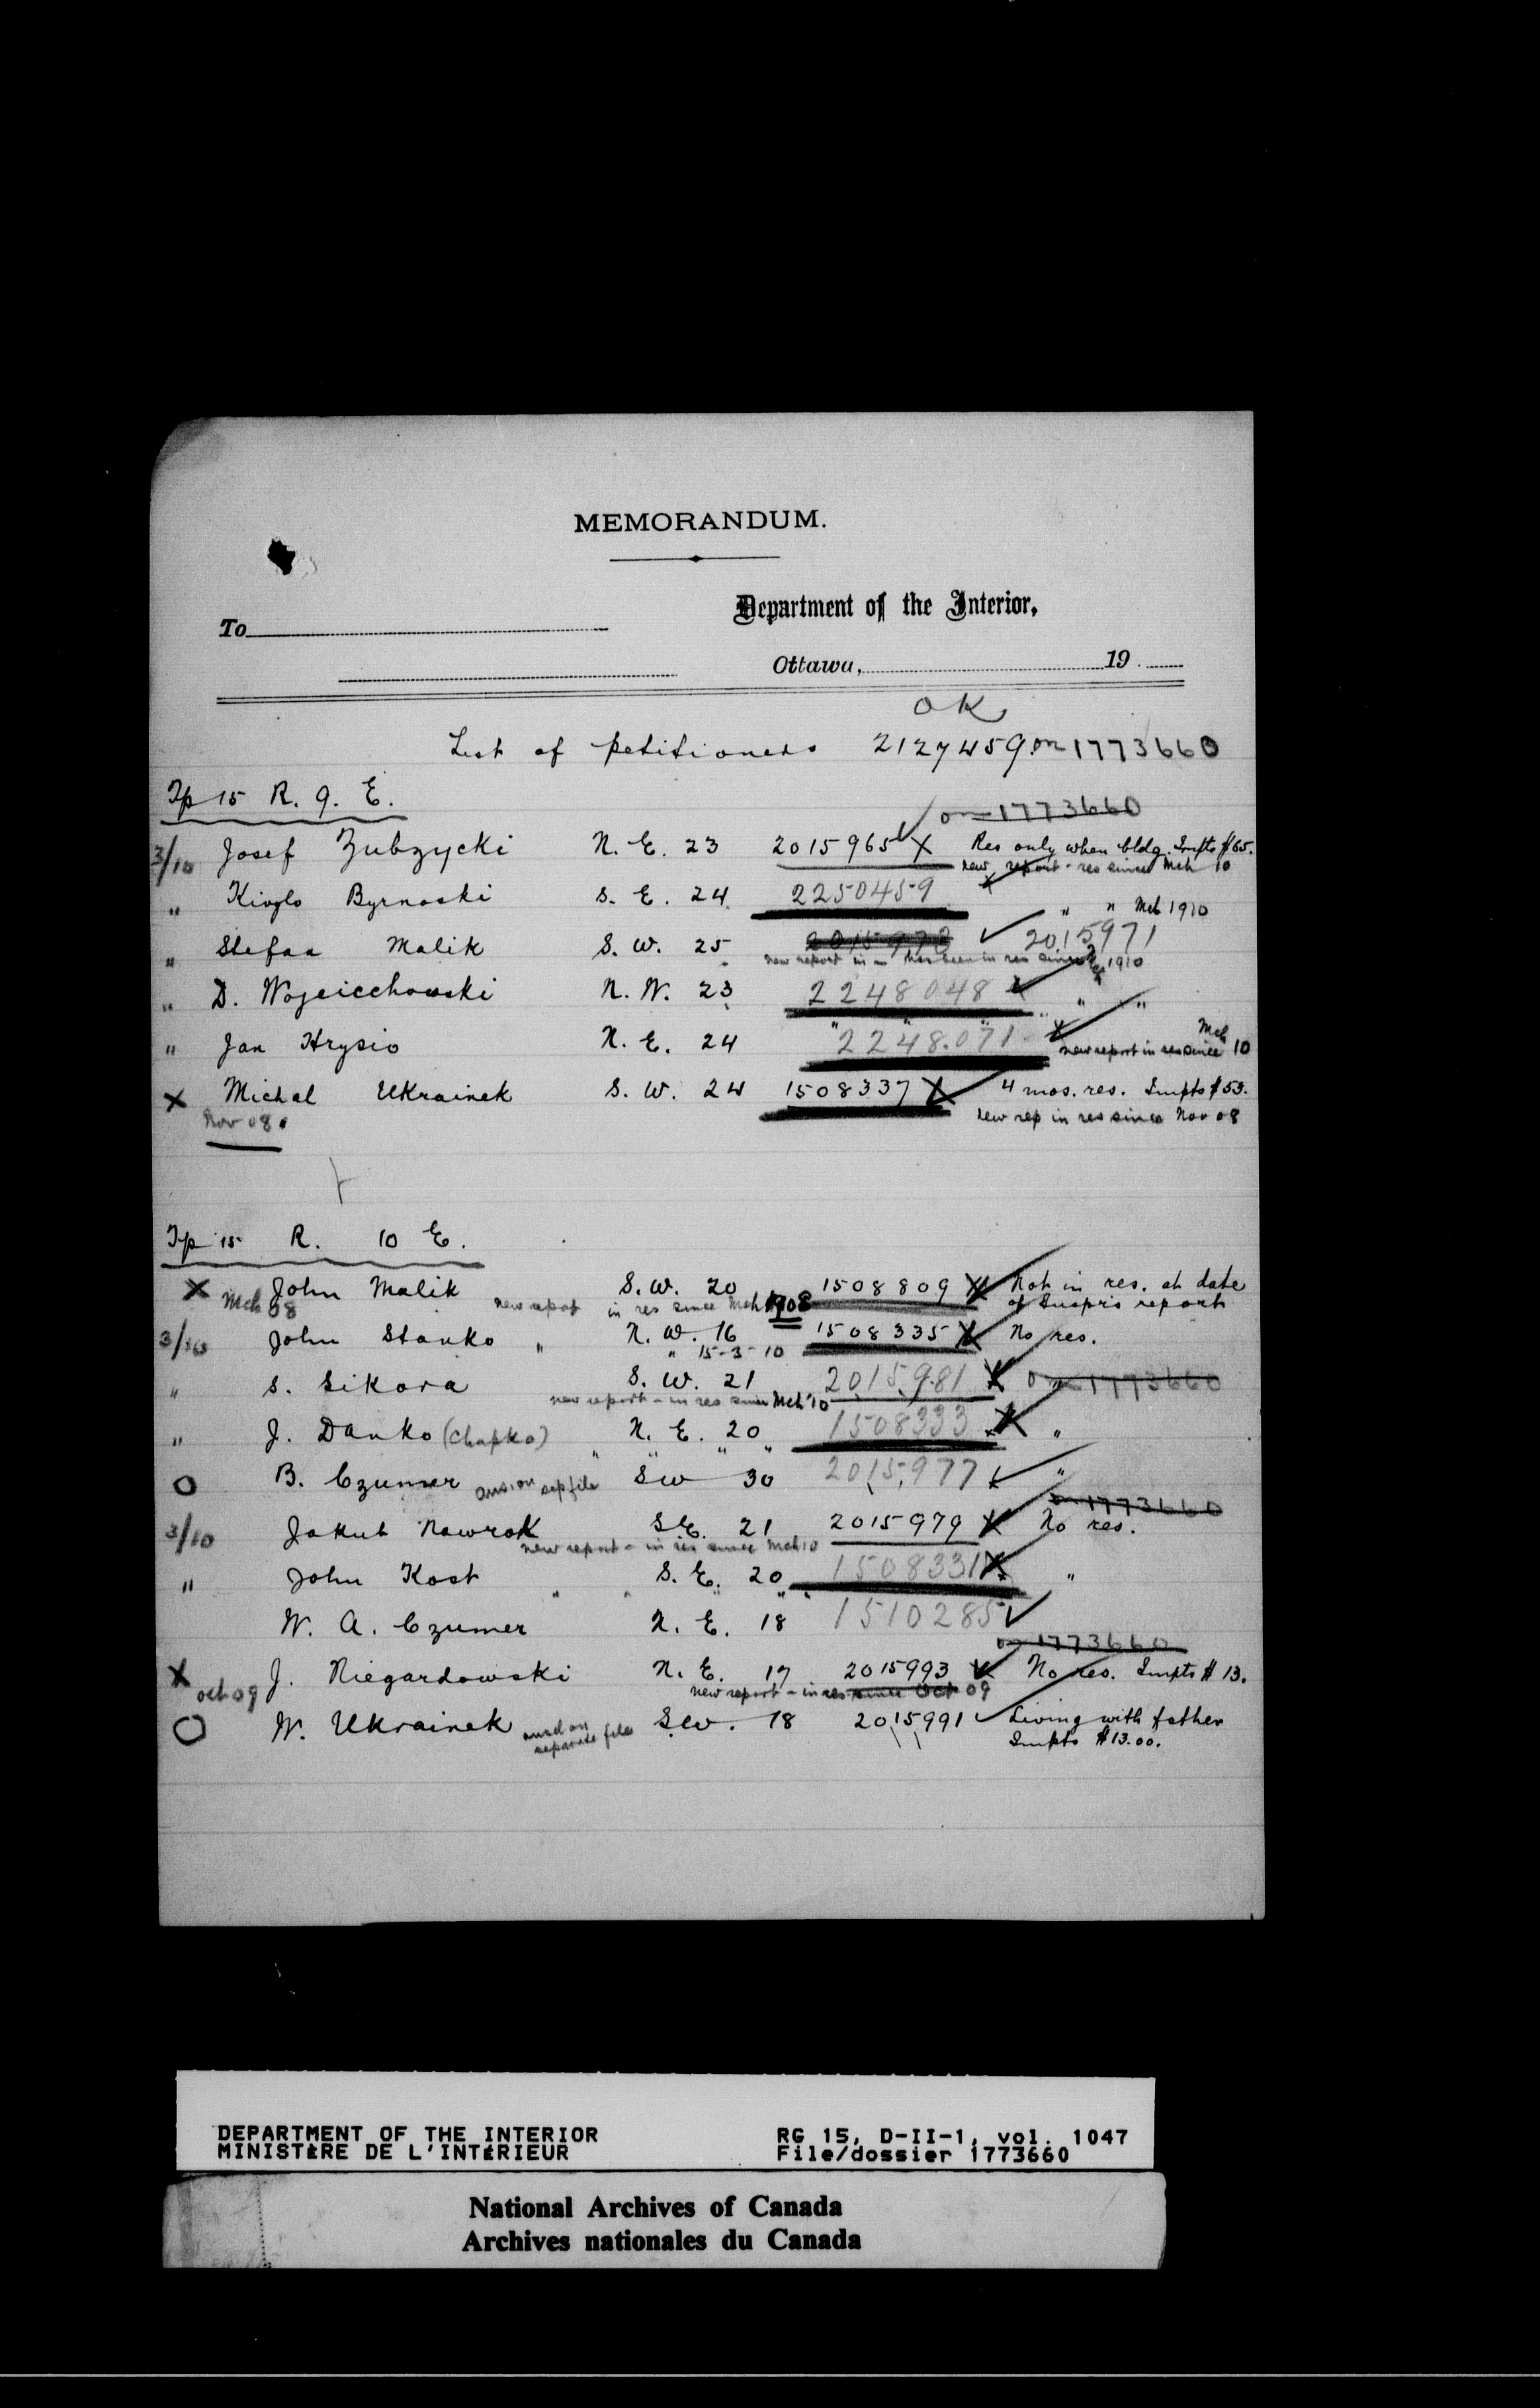 MEMORANDUM.
Department of the Interior,
To
Ottawa, 19
OK
List of petitioners 2127459 on 1773660
Tp 15 R. 9. E.
on 1773660
3/10 Josef Zubzycki N. E. 23 2015965 X Res only when bldg. Impts $65.
new report - res since Mch 10
" Kioglo Byrnoski S. E. 24 2250459
" " Mch 1910
" Stefan Malik S. W. 25 2015971
new report in - has been in res since 1910
" D. Wojciechowski N. W. 23 2248048 " "
" Jan Hrysio N. E. 24 2248071 new report in res since Mch 10
X Michal Ukrainek S. W. 24 1508337 X 4 mos. res. Impts $53.
Nov 08 new rep in res since Nov 08
Tp 15 R. 10 E.
X John Malik S. W. 20 1508809 X Not in res. at date
Mch 08 new report in res since Mch 1908 of Inspr's report
3/10 John Stanko " N. W. 16 1508335 X No res.
" 15-3-10
" S. Sikora S. W. 21 2015981 X on 1773660
new report - in res since Mch '10
" J. Danko (Chapko) N. E. 20 1508333 X "
O B. Czumer ans. on sep file SW 30 2015977 "
on 1773660
3/10 Jakub Nawrok S.E. 21 2015979 X No res.
new report - in res since Mch 10
" John Kost S. E. 20 1508331 X "
W. A. Czumer N. E. 18 1510285
on 1773660
X J. Niegardowski N. E. 17 2015993 No res. Impts $13.
oct 09 new report - in res since Oct 09
O W. Ukrainek ansd on S.W. 18 2015991 Living with father
separate file Impts $13.00.
DEPARTMENT OF THE INTERIOR RG 15, D-II-1, vol. 1047
MINISTÈRE DE L'INTÉRIEUR File/dossier 1773660
National Archives of Canada
Archives nationales du Canada